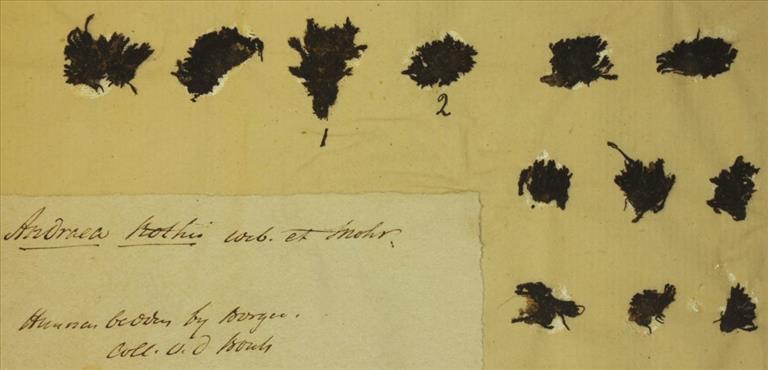 1
2
Andraea Rothii web. et Mohr.
Hunnenbedden by Borger.
Coll. v. d